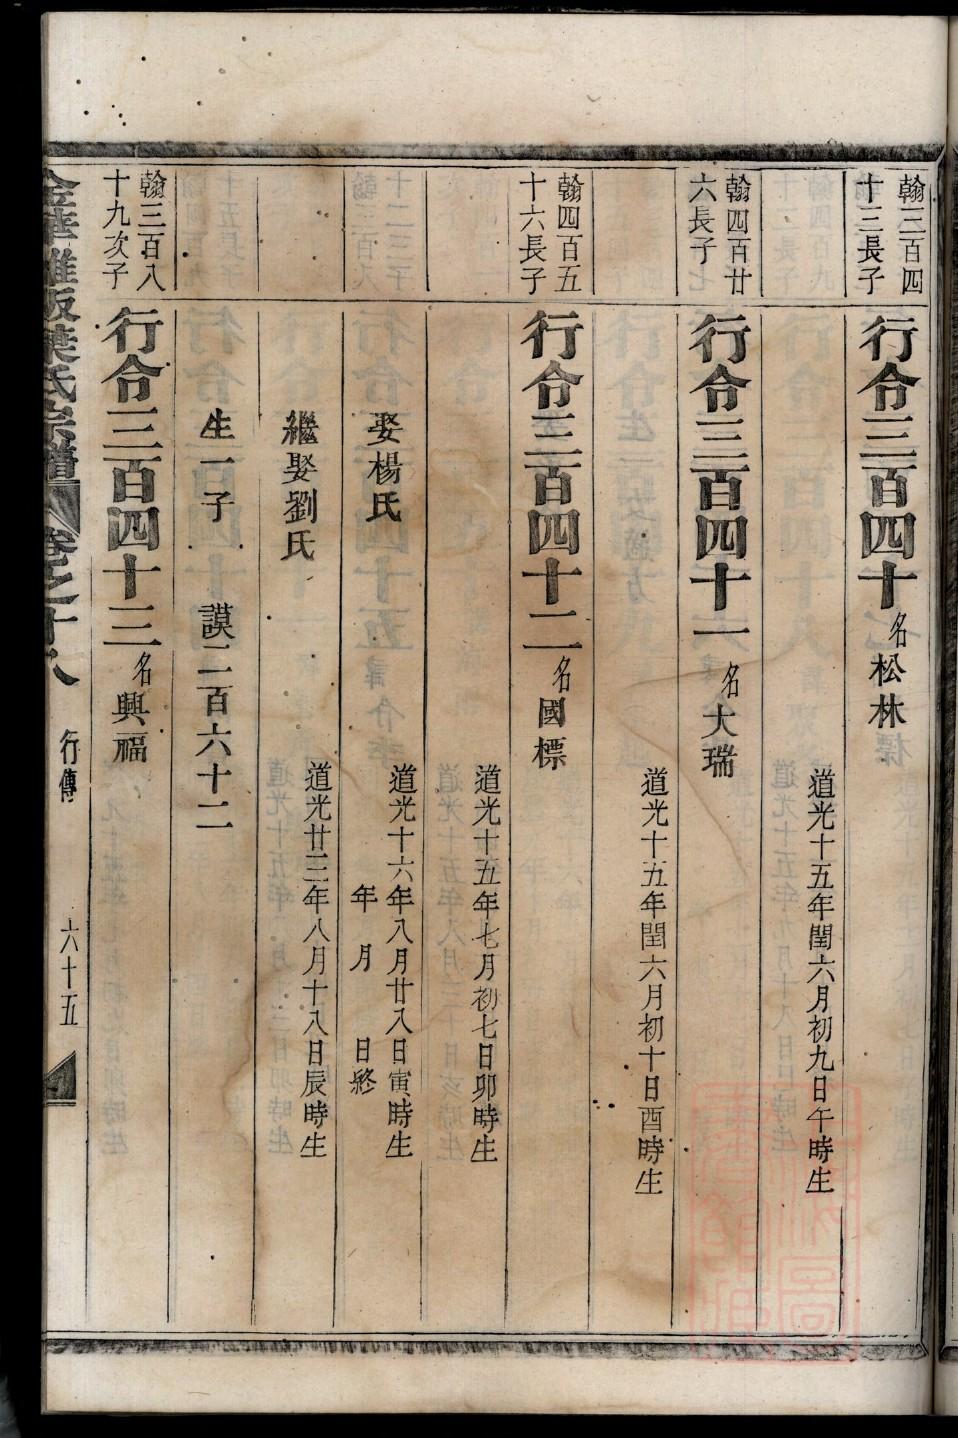 翰三百四
十三長子
行令三百四十名松林
道光十五年閏六月初九日午時生
翰四百廿
六長子
行令三百四十一名大瑞
道光十五年閏六月初十日酉時生
翰四百五
十六長子
行令三百四十二名國標
道光十五年七月初七日卯時生
娶楊氏
道光十六年八月廿八日寅時生
年 月 日終
繼娶劉氏
道光廿三年八月十八日辰時生
生一子 謨二百六十二
翰三百八
十九次子
行令三百四十三名興福
葉氏宗譜 卷之十八 行傳 六十五